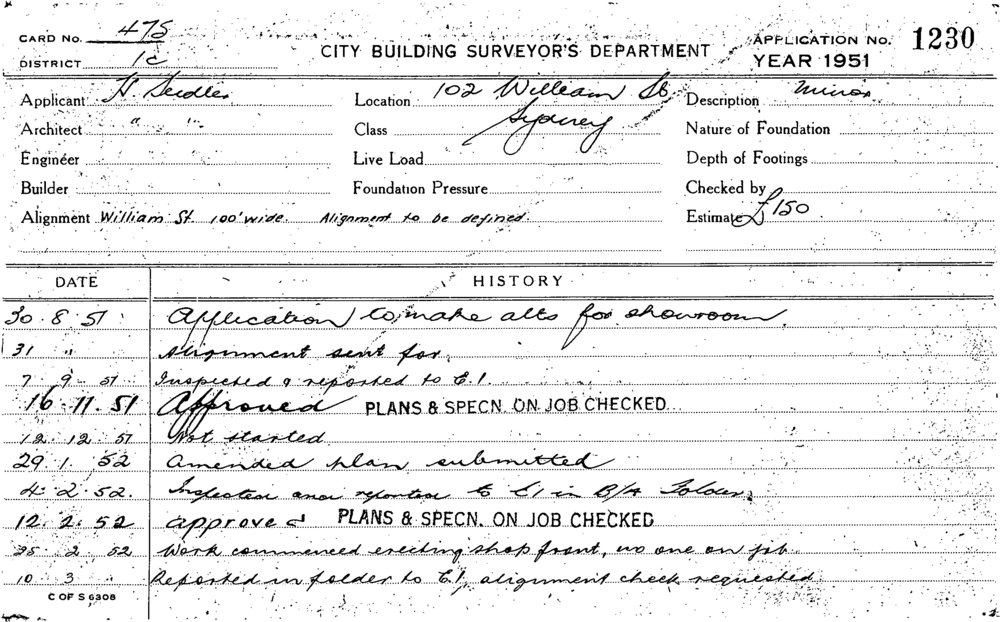 CARD No. 475
DISTRICT 1c
CITY BUILDING SURVEYOR'S DEPARTMENT
APPLICATION No. 1230
YEAR 1951
Applicant H. Seidler
Location 102 William St.
Sydney
Description Minor
Architect " "
Class
Nature of Foundation
Engineer
Live Load
Depth of Footings
Builder
Foundation Pressure
Checked by
Alignment William St. 100' wide. Alignment to be defined.
Estimate £150
DATE HISTORY
30 . 8 . 51 Application to make alts for showroom.
31 " Alignment sent for.
7 . 9 . 51 Inspected & reported to E.1.
16 . 11 . 51 Approved PLANS & SPECN. ON JOB CHECKED
12 . 12 . 51 Not started
29 . 1 . 52 Amended plan submitted
4 . 2 . 52. Inspected and reported to E1 in B/A Folder.
12 . 2 . 52 approved PLANS & SPECN. ON JOB CHECKED
25 . 2 . 52 Work commenced erecting shop front, no one on job.
10 . 3 " Reported in folder to E.1. alignment check requested
C OF S 6308